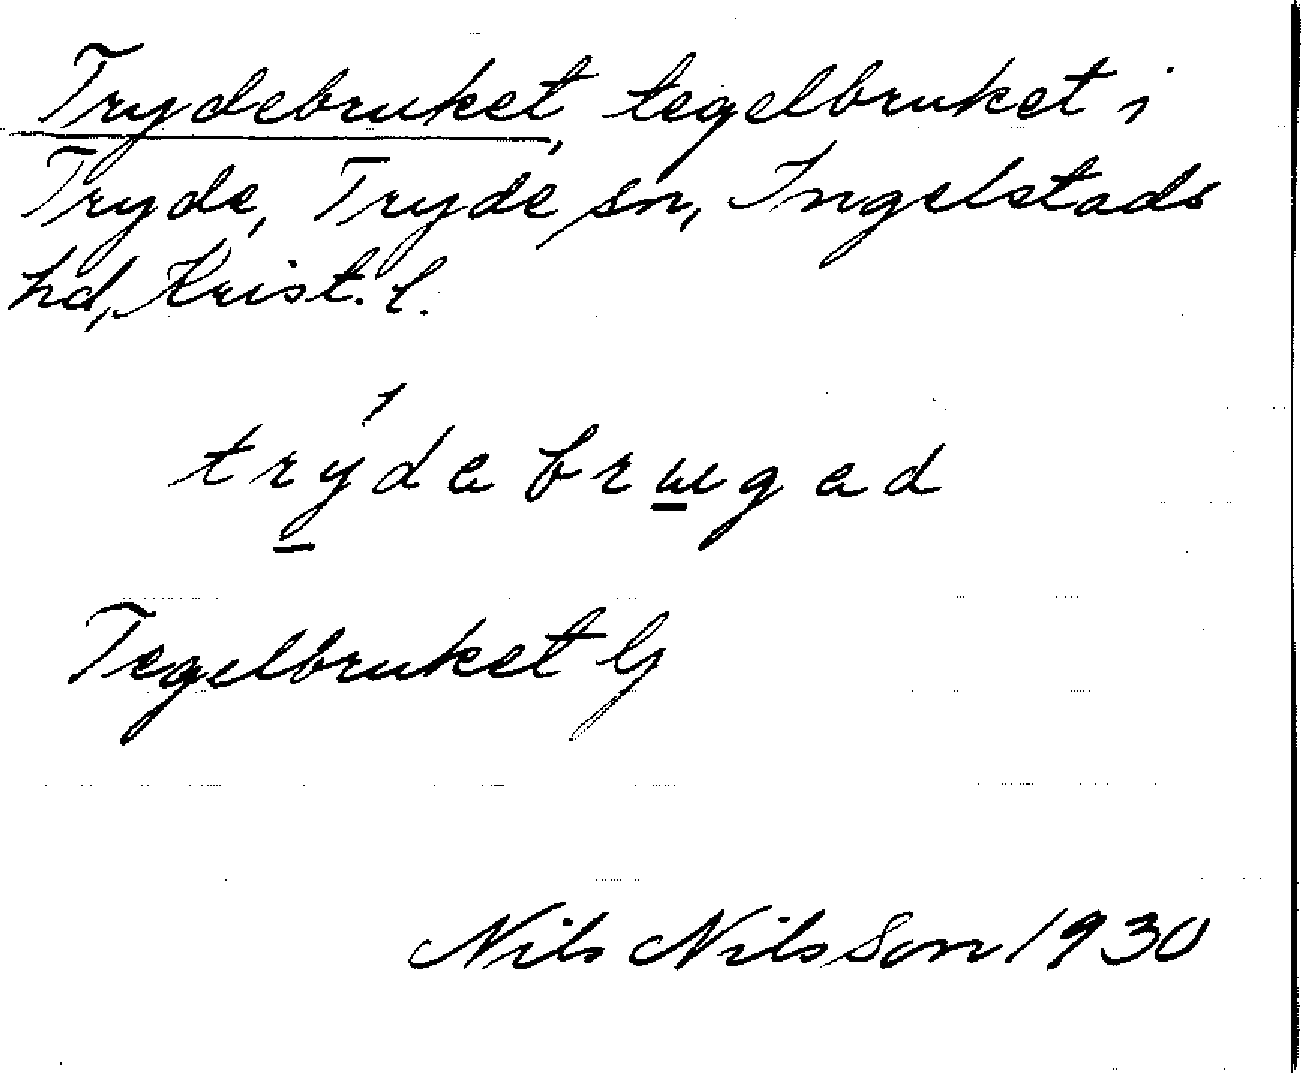 Trydebruket, tegelbruket i
Tryde, Tryde sn, Ingelstads
hd, Krist. l.
trýdabrugad
Tegelbruket G
Nils Nilsson 1930